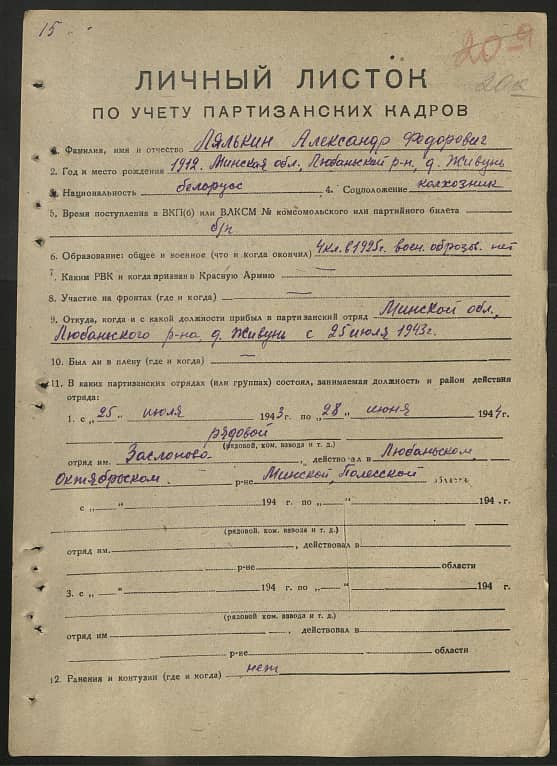 15
20-9
ЛИЧНЫЙ ЛИСТОК
ПО УЧЕТУ ПАРТИЗАНСКИХ КАДРОВ
1. Фамилия, имя и отчество Лялькин Александр Федорович
2. Год и место рождения 1912. Минская обл., Любаньской р-н, д. Живунь
3. Национальность белорус 4. Соцположение колхозник
5. Время поступления в ВКП(б) или ВЛКСМ № комсомольского или партийного билета
б/п
6. Образование: общее и военное (что и когда окончил) 4 кл. в 1925г. воен. образов. нет
7. Каким РВК и когда призван в Красную Армию —
8. Участие на фронтах (где и когда) —
9. Откуда, когда и с какой должности прибыл в партизанский отряд Минской обл.,
Любаньского р-на, д. Живунь с 25 июля 1943г.
10. Был ли в плену (где и когда) —
11. В каких партизанских отрядах (или группах) состоял, занимаемая должность и район действия
отряда:
1. с „25" июля 1943 г. по „28" июня 1944 г.
рядовой
(рядовой, ком. взвода и т. д.)
отряд им. Заслоново, действовал в Любаньском,
Октябрьском. р-не Минской, Полесской области
с „ " 194 г. по „ " 194 г.
(рядовой. ком. взвода и т. д.)
отряд им. , действовал в
р-не области
3. с „ " 194 г. по „ " 194 г.
(рядовой ком. взвода и т. д.)
отряд им , действовал в
р-не области
12. Ранения и контузии (где и когда) нет